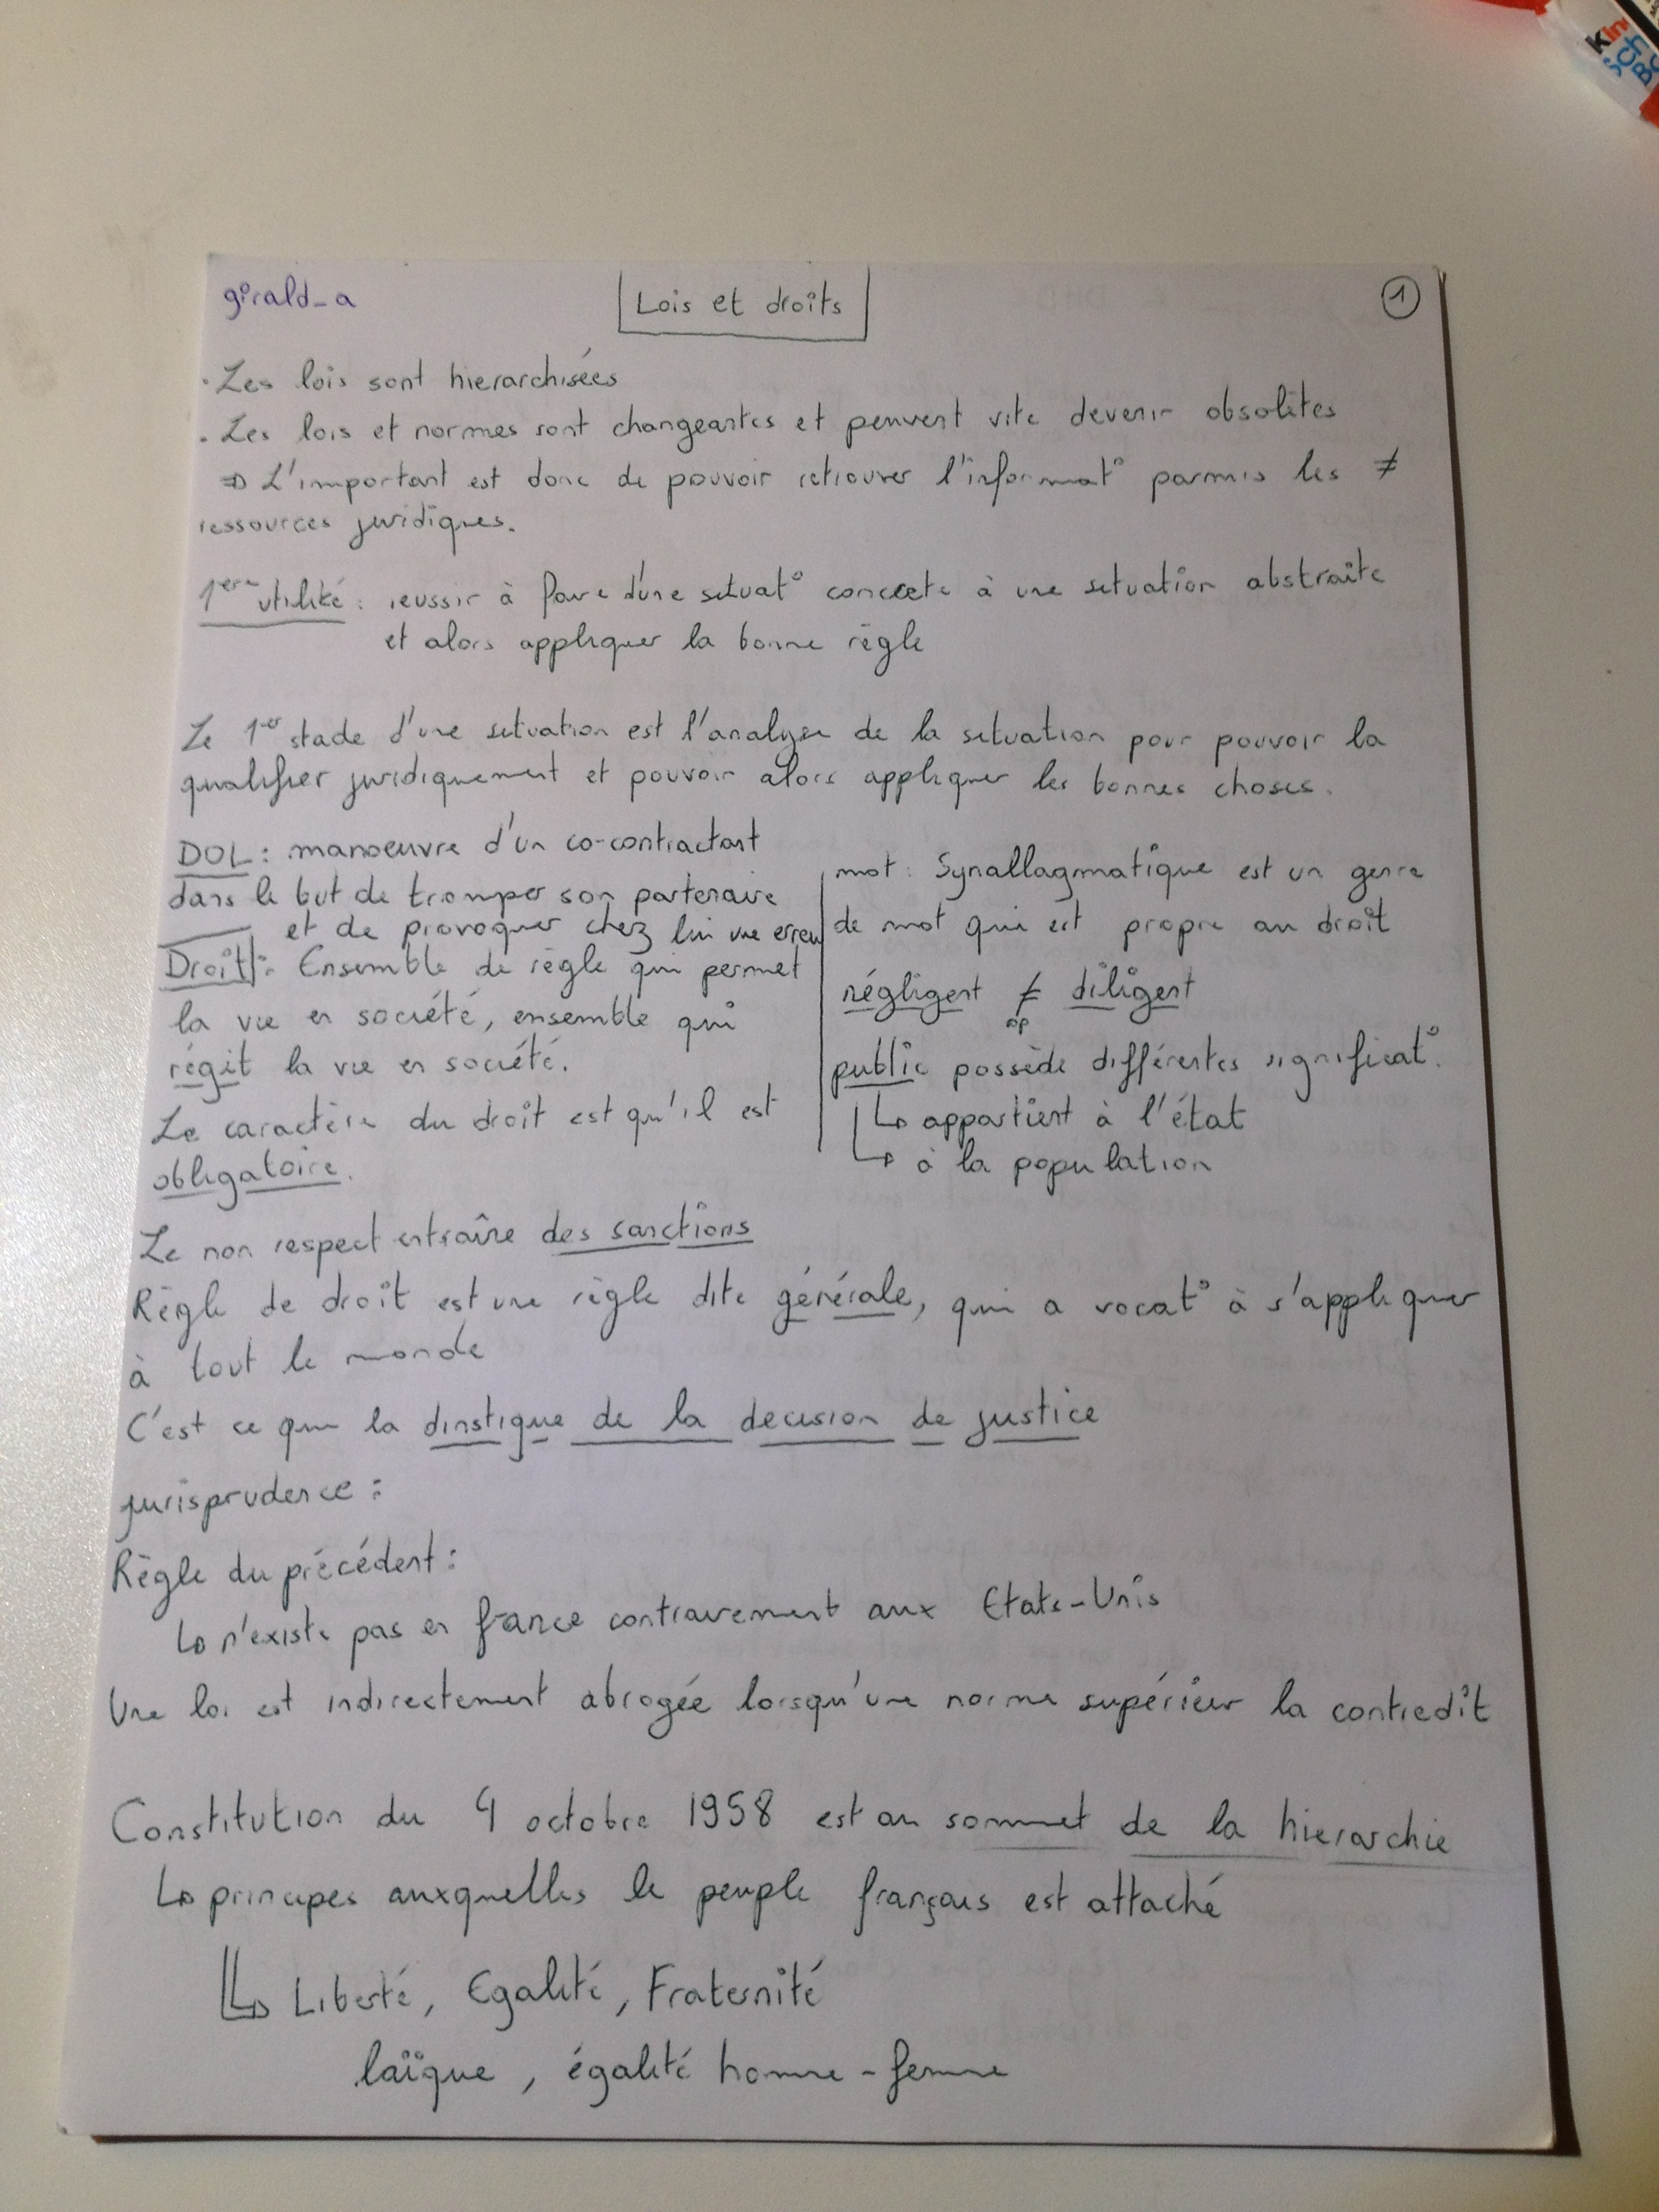 girald_a
Lois et droits
1
. Les lois sont hierarchisées
. Les lois et normes sont changeantes et peuvent vite devenir obsolètes
⇒ L'important est donc de pouvoir retrouver l'informat° parmis les ≠
ressources juridiques.
1ere utilité : reussir à faire d'une situat° concrete à une situation abstraite
et alors appliquer la bonne règle
Le 1er stade d'une situation est l'analyse de la situation pour pouvoir la
qualifier juridiquement et pouvoir alors appliquer les bonnes choses.
DOL : manoeuvre d'un co-contractant
dans le but de tromper son partenaire
et de provoquer chez lui une erreu
Droit : Ensemble de règle qui permet
la vie en société, ensemble qui
régit la vie en société.
Le caractère du droit est qu'il est
obligatoire.
mot : Synallagmatique est un genre
de mot qui est propre au droit
négligent ≠ diligent
op
public possède différentes significat°.
↳ appartient à l'état
↳ à la population
Le non respect entraîne des sanctions
Règle de droit est une règle dite générale, qui a vocat° à s'appliquer
à tout le monde
C'est ce qui la dinstigue de la decision de justice
jurisprudence :
Règle du précédent :
↳ n'existe pas en france contrairement aux Etats-Unis
Une loi est indirectement abrogée lorsqu'une norme supérieur la contredit
Constitution du 4 octobre 1958 est au sommet de la hierarchie
↳ principes auxquelles le peuple français est attaché
↳ Liberté, Egalité, Fraternité
laïque, égalité homme - femme